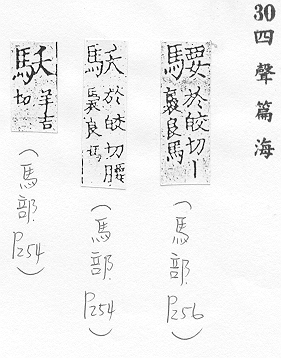 30 四聲篇海
騕 於皎切丨
褭良馬
(馬部
P256)
於皎切騕
褭良馬
(馬部
P254)
羊吉
切
(馬部
P254)